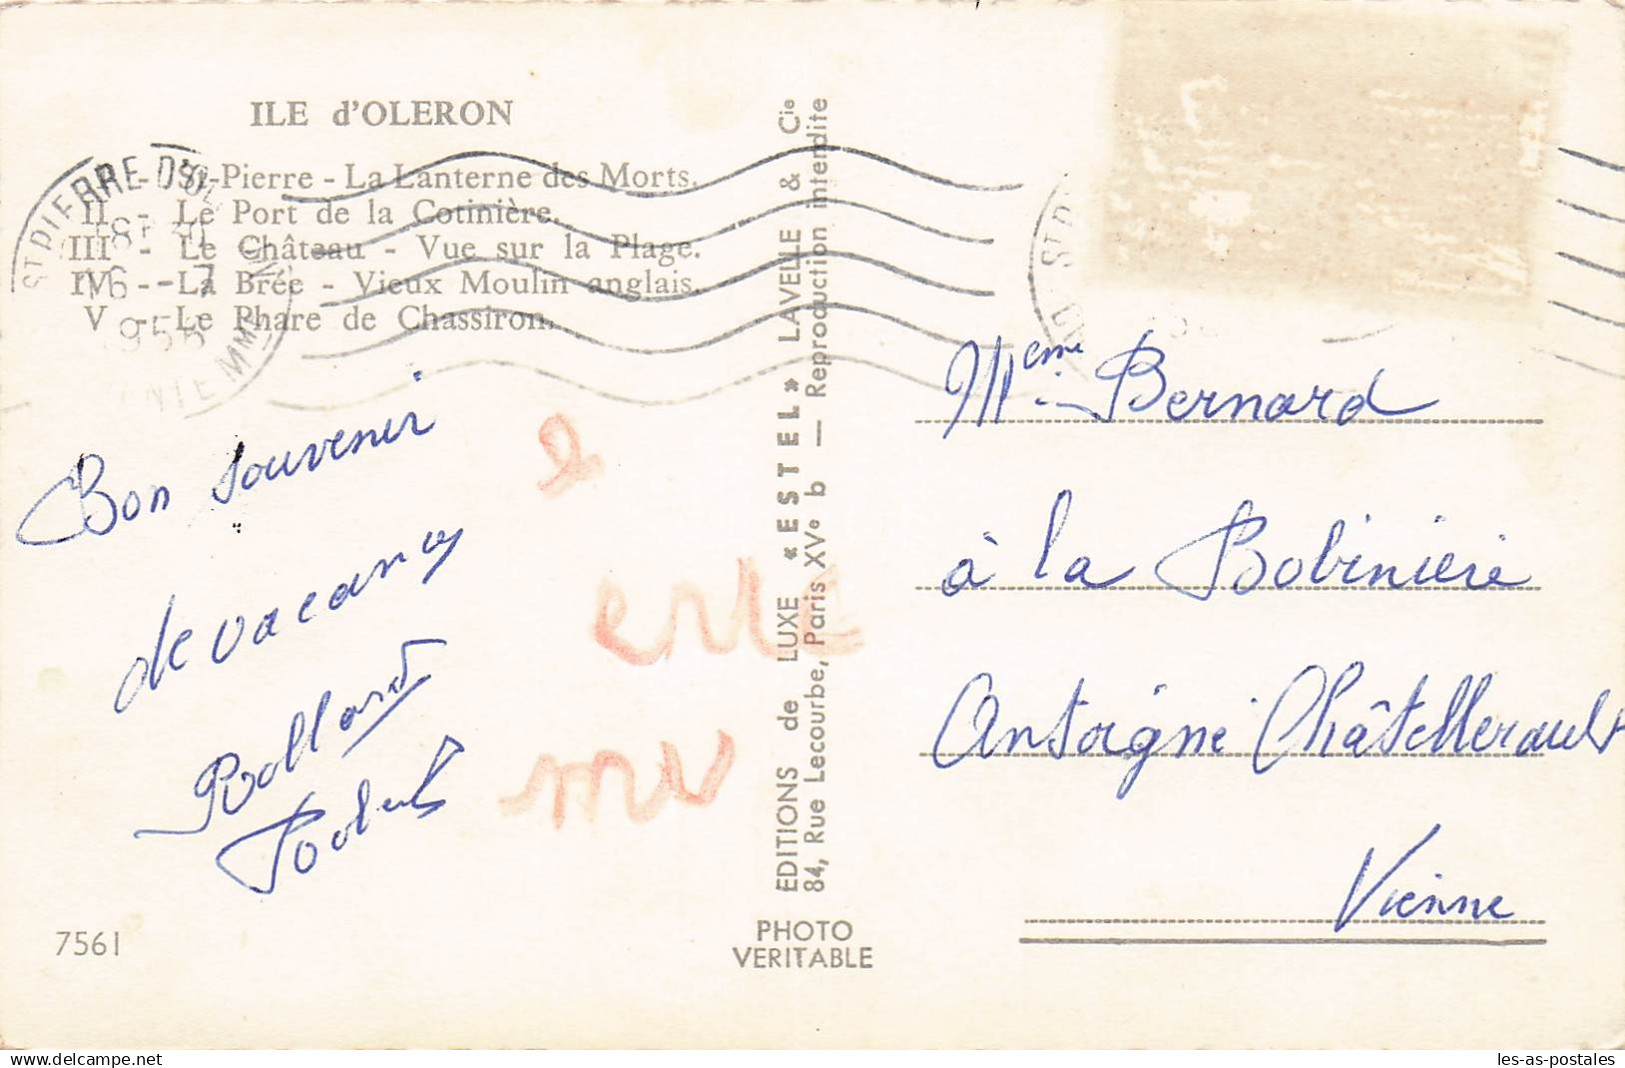 ILE d'OLERON
I - St-Pierre - La Lanterne des Morts.
II - Le Port de la Cotinière.
III - Le Château - Vue sur la Plage.
IV - La Brée - Vieux Moulin anglais.
V - Le Phare de Chassiron.
ST PIERRE D'OL
18
16 - 7
1956
Bon souvenir
de vacances
7561
EDITIONS de LUXE « ESTEL » LAVELLE & Cie
84, Rue Lecourbe, Paris XVe b — Reproduction interdite
PHOTO
VERITABLE
Meme Bernard
à la Bobinière
Antoigné Châtellerault
Vienne
delcampe.net
les-as-postales